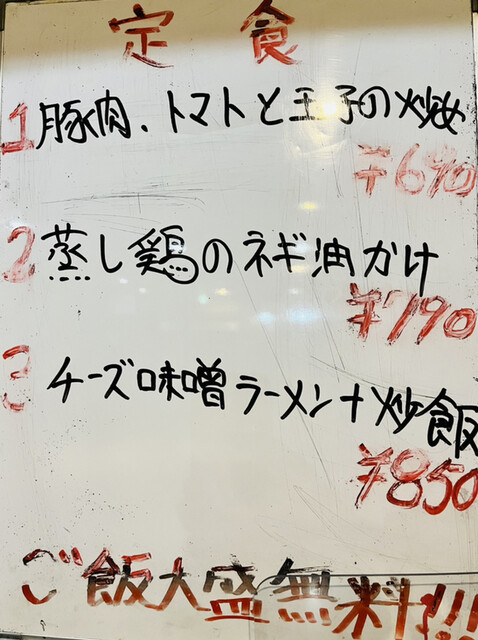 定食
1 豚肉、トマトと玉子の炒め
¥690
2 蒸し鶏のネギ油かけ
¥790
3 チーズ味噌ラーメン+炒飯
¥850
ご飯大盛無料!!!